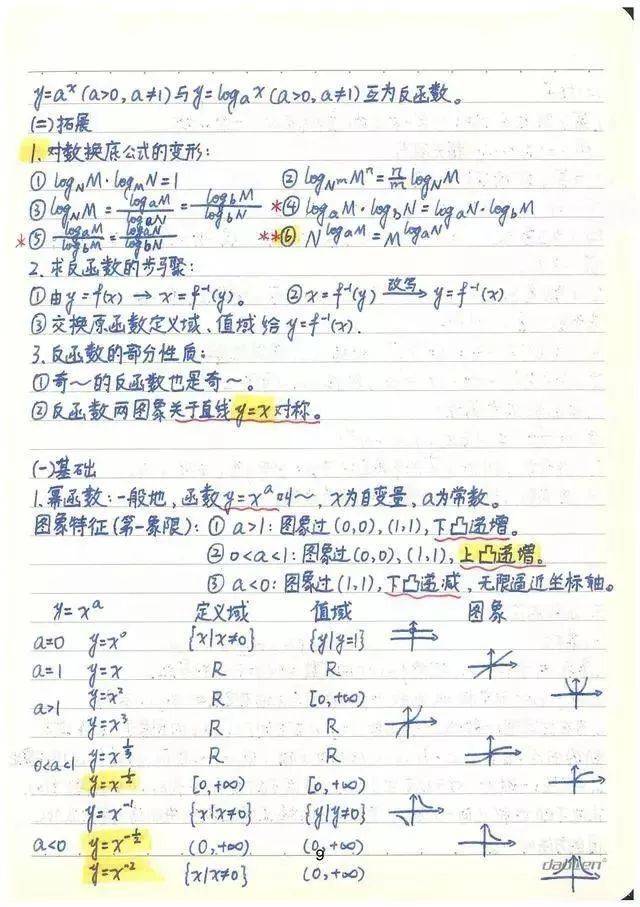 y=aˣ(a>0, a≠1)与y=logₐx(a>0, a≠1)互为反函数。
(二)拓展
1. 对数换底公式的变形:
① log_N M · log_M N = 1 ② log_{N^m} M^n = n/m log_N M
③ log_N M = log_a M / log_a N = log_b M / log_b N *④ log_a M · log_b N = log_a N · log_b M
*⑤ log_a M / log_b M = log_a N / log_b N **⑥ N^{log_a M} = M^{log_a N}
2. 求反函数的步骤:
①由y=f(x) → x=f⁻¹(y)。 ② x=f⁻¹(y) 改写→ y=f⁻¹(x)
③ 交换原函数定义域、值域给y=f⁻¹(x).
3. 反函数的部分性质:
①奇~的反函数也是奇~。
②反函数两图象关于直线y=x对称。
(一)基础
1. 幂函数:一般地,函数y=xᵃ叫~,x为自变量,a为常数。
图象特征(第一象限): ① a>1:图象过(0,0),(1,1),下凸递增。
② 0<a<1:图象过(0,0),(1,1),上凸递增。
③ a<0:图象过(1,1),下凸递减,无限逼近坐标轴。
y=xᵃ 定义域 值域 图象
a=0 y=x⁰ {x|x≠0} {y|y=1}
a=1 y=x R R
a>1 y=x² R [0,+∞)
y=x³ R R
0<a<1 y=x^{1/3} R R
y=x^{1/2} [0,+∞) [0,+∞)
y=x⁻¹ {x|x≠0} {y|y≠0}
a<0 y=x^{-1/2} (0,+∞) (0,+∞)
y=x⁻² {x|x≠0} (0,+∞)
9